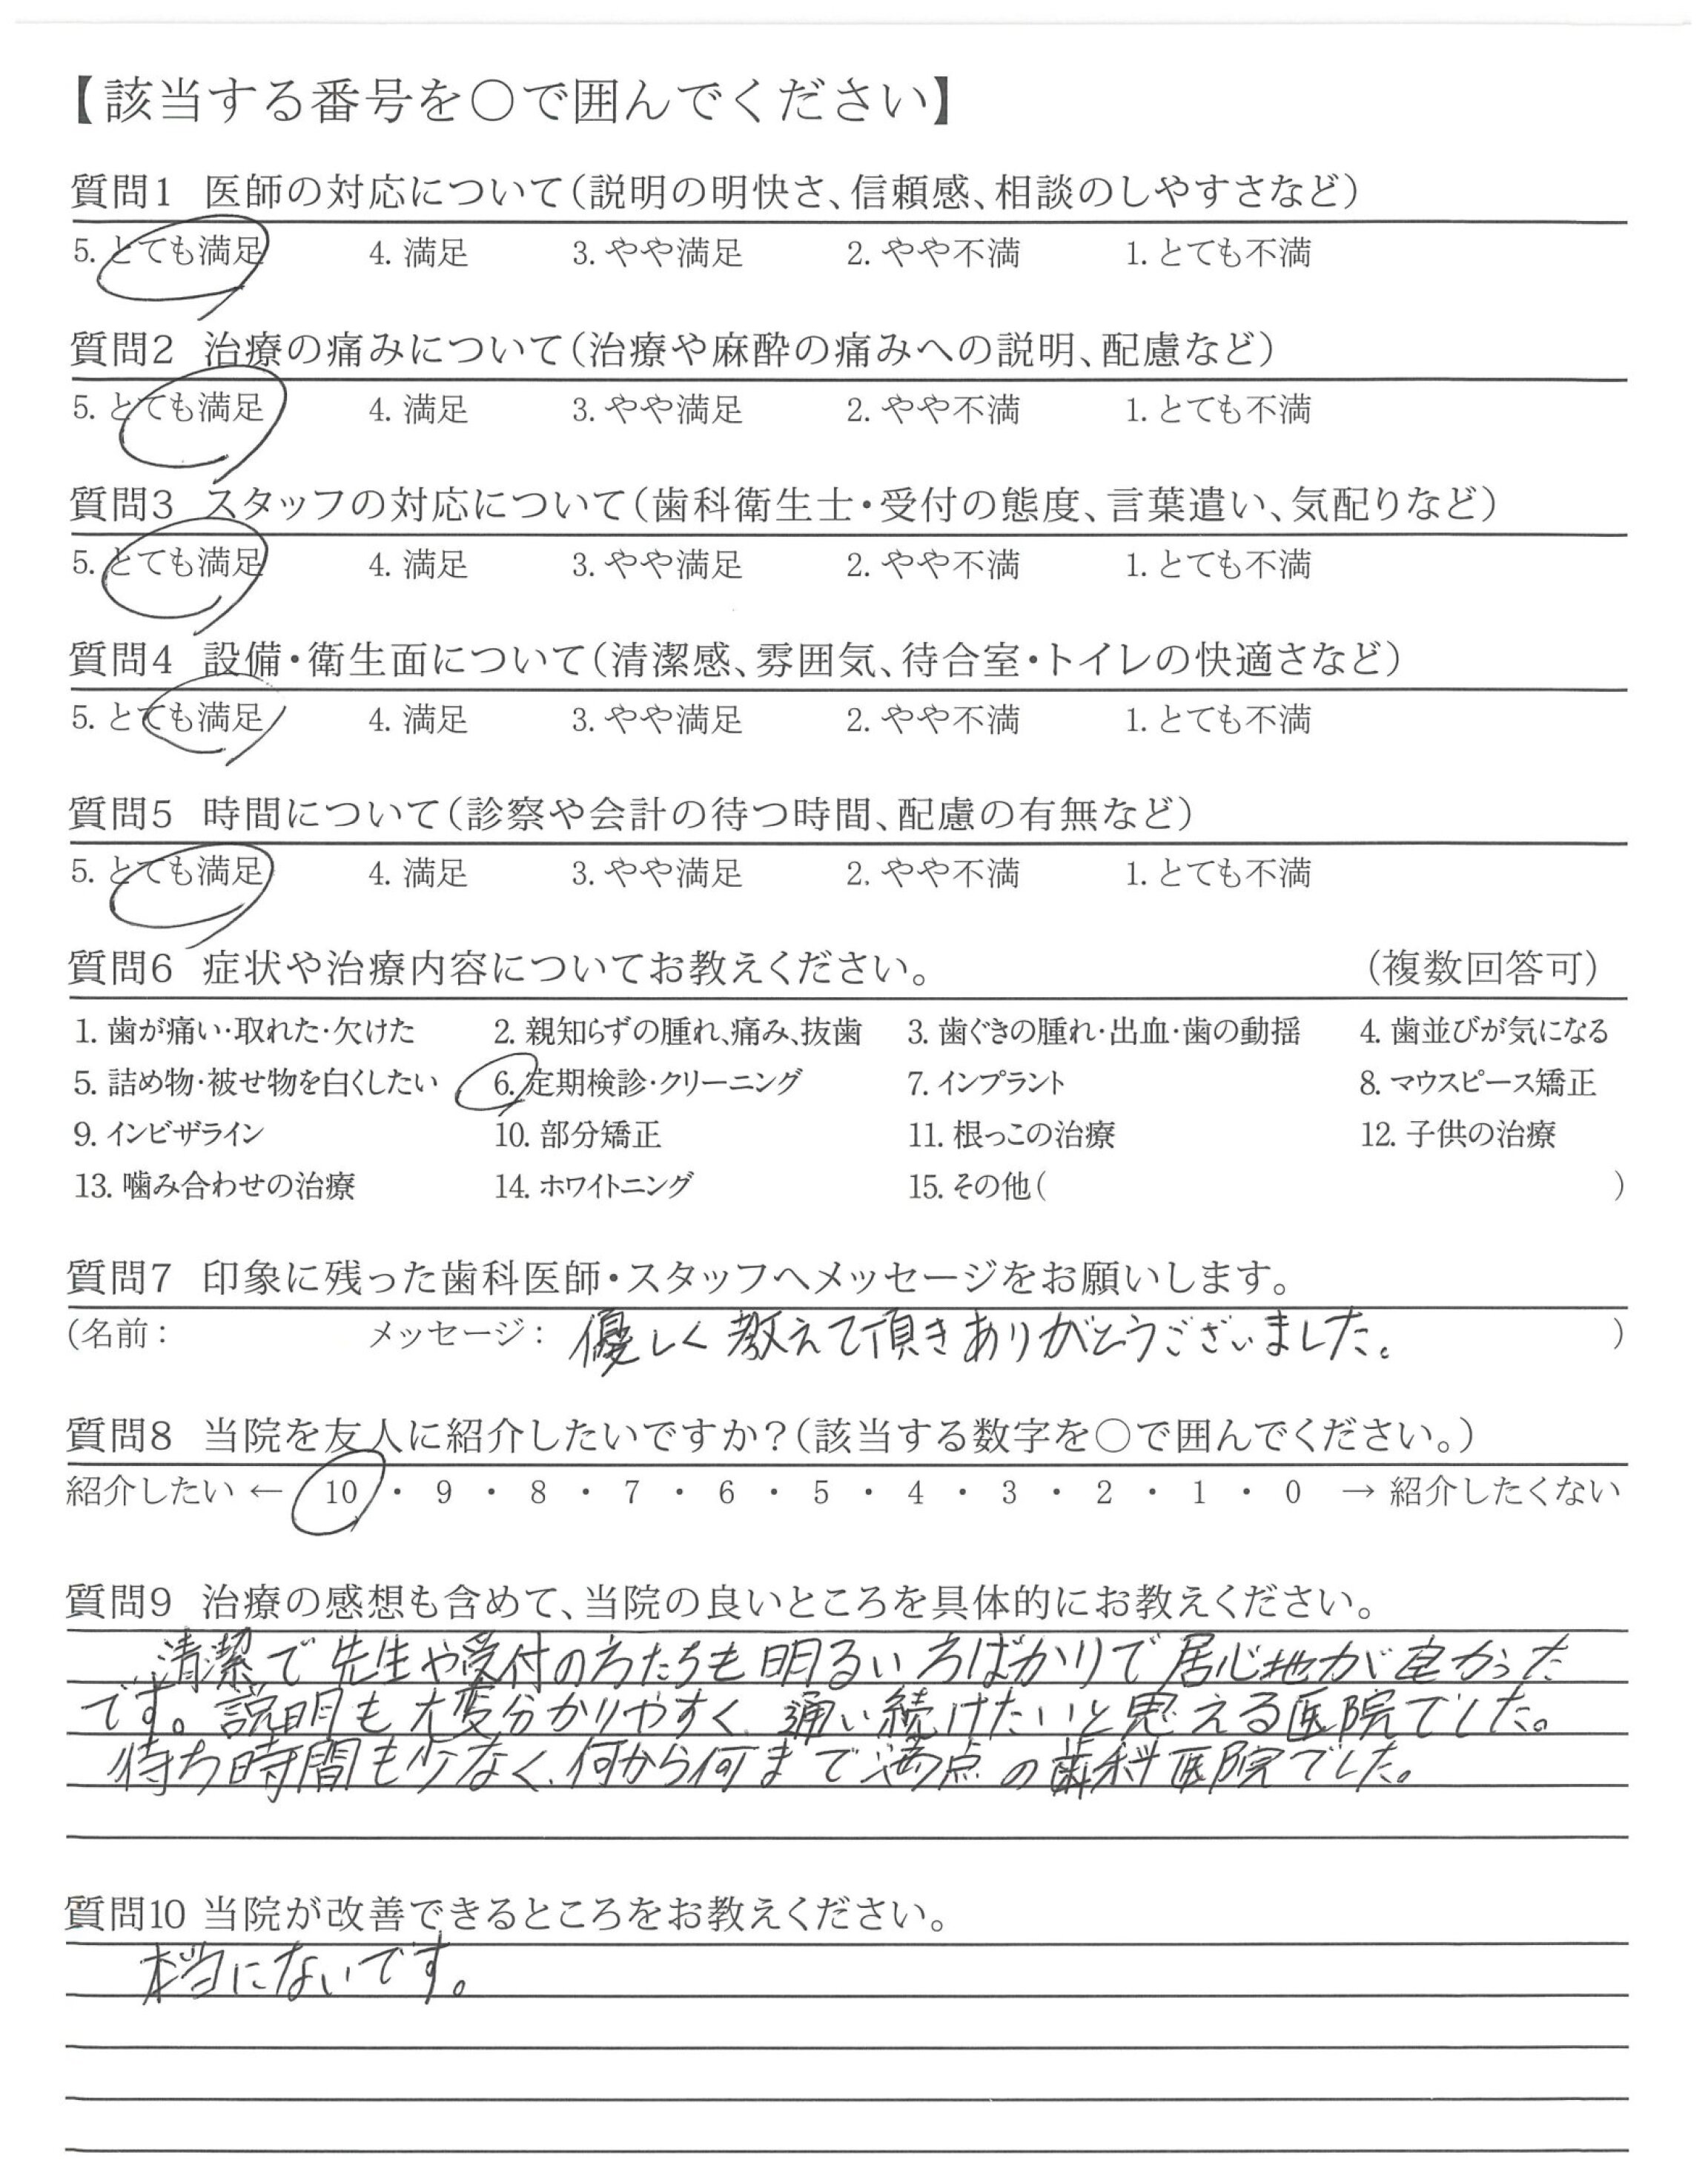 【該当する番号を〇で囲んでください】
質問1 医師の対応について(説明の明快さ、信頼感、相談のしやすさなど)
5. とても満足 4. 満足 3. やや満足 2. やや不満 1. とても不満
質問2 治療の痛みについて(治療や麻酔の痛みへの説明、配慮など)
5. とても満足 4. 満足 3. やや満足 2. やや不満 1. とても不満
質問3 スタッフの対応について(歯科衛生士・受付の態度、言葉遣い、気配りなど)
5. とても満足 4. 満足 3. やや満足 2. やや不満 1. とても不満
質問4 設備・衛生面について(清潔感、雰囲気、待合室・トイレの快適さなど)
5. とても満足 4. 満足 3. やや満足 2. やや不満 1. とても不満
質問5 時間について(診察や会計の待つ時間、配慮の有無など)
5. とても満足 4. 満足 3. やや満足 2. やや不満 1. とても不満
質問6 症状や治療内容についてお教えください。 (複数回答可)
1. 歯が痛い・取れた・欠けた 2. 親知らずの腫れ、痛み、抜歯 3. 歯ぐきの腫れ・出血・歯の動揺 4. 歯並びが気になる
5. 詰め物・被せ物を白くしたい 6. 定期検診・クリーニング 7. インプラント 8. マウスピース矯正
9. インビザライン 10. 部分矯正 11. 根っこの治療 12. 子供の治療
13. 噛み合わせの治療 14. ホワイトニング 15. その他( )
質問7 印象に残った歯科医師・スタッフへメッセージをお願いします。
(名前: メッセージ: 優しく教えて頂きありがとうございました。 )
質問8 当院を友人に紹介したいですか?(該当する数字を〇で囲んでください。)
紹介したい ← 10 ・ 9 ・ 8 ・ 7 ・ 6 ・ 5 ・ 4 ・ 3 ・ 2 ・ 1 ・ 0 → 紹介したくない
質問9 治療の感想も含めて、当院の良いところを具体的にお教えください。
清潔で先生や受付の方たちも明るい方ばかりで居心地が良かった
です。説明も大変分かりやすく、通い続けたいと思える医院でした。
待ち時間も少なく、何から何まで満点の歯科医院でした。
質問10 当院が改善できるところをお教えください。
本当にないです。